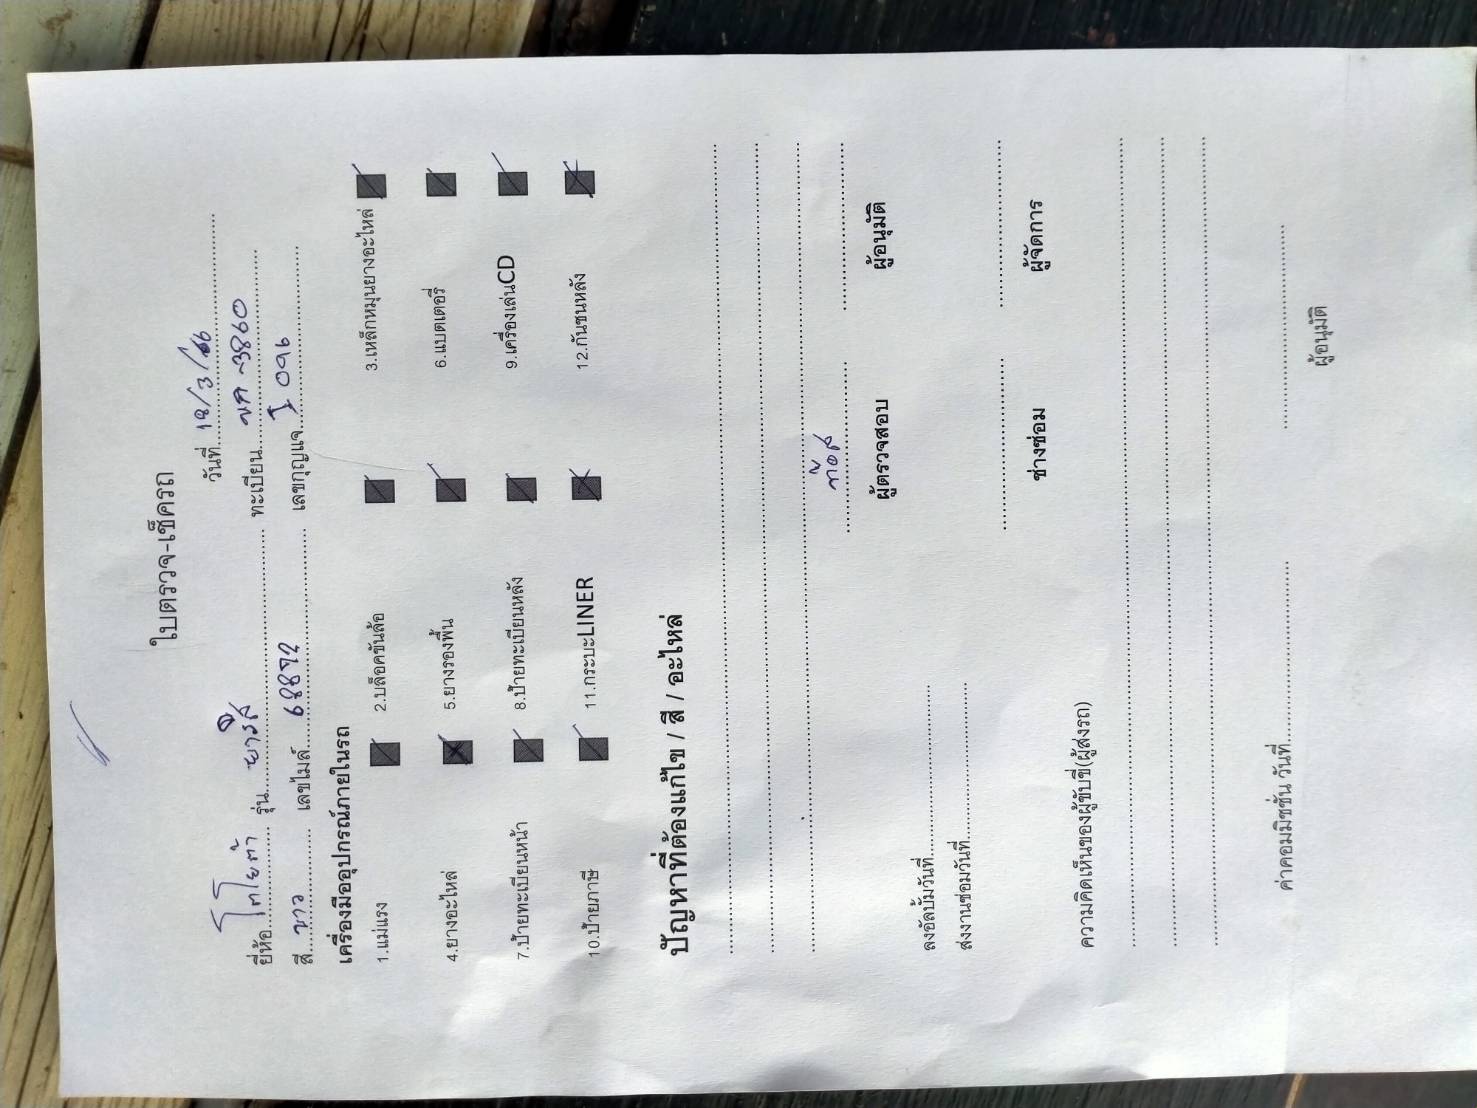 ใบตรวจ-เช็ครถ
วันที่ 12/3/66
ยี่ห้อ โตโยต้า รุ่น ยาริส ทะเบียน ขค 3860
สี ขาว เลขไมล์ 68872 เลขกุญแจ 1096
เครื่องมืออุปกรณ์ภายในรถ
1.แม่แรง 2.บล็อคขันล้อ 3.เหล็กหมุนยางอะไหล่
4.ยางอะไหล่ 5.ยางรองพื้น 6.แบตเตอรี่
7.ป้ายทะเบียนหน้า 8.ป้ายทะเบียนหลัง 9.เครื่องเล่นCD
10.ป้ายภาษี 11.กระบะLINER 12.กันชนหลัง
ปัญหาที่ต้องแก้ไข / สี / อะไหล่
ผู้ตรวจสอบ ผู้อนุมัติ
ลงอัลบั้มวันที่
ส่งงานซ่อมวันที่
ช่างซ่อม ผู้จัดการ
ความคิดเห็นของผู้ขับขี่(ผู้ส่งรถ)
ค่าคอมมิชชั่น วันที่
ผู้อนุมัติ